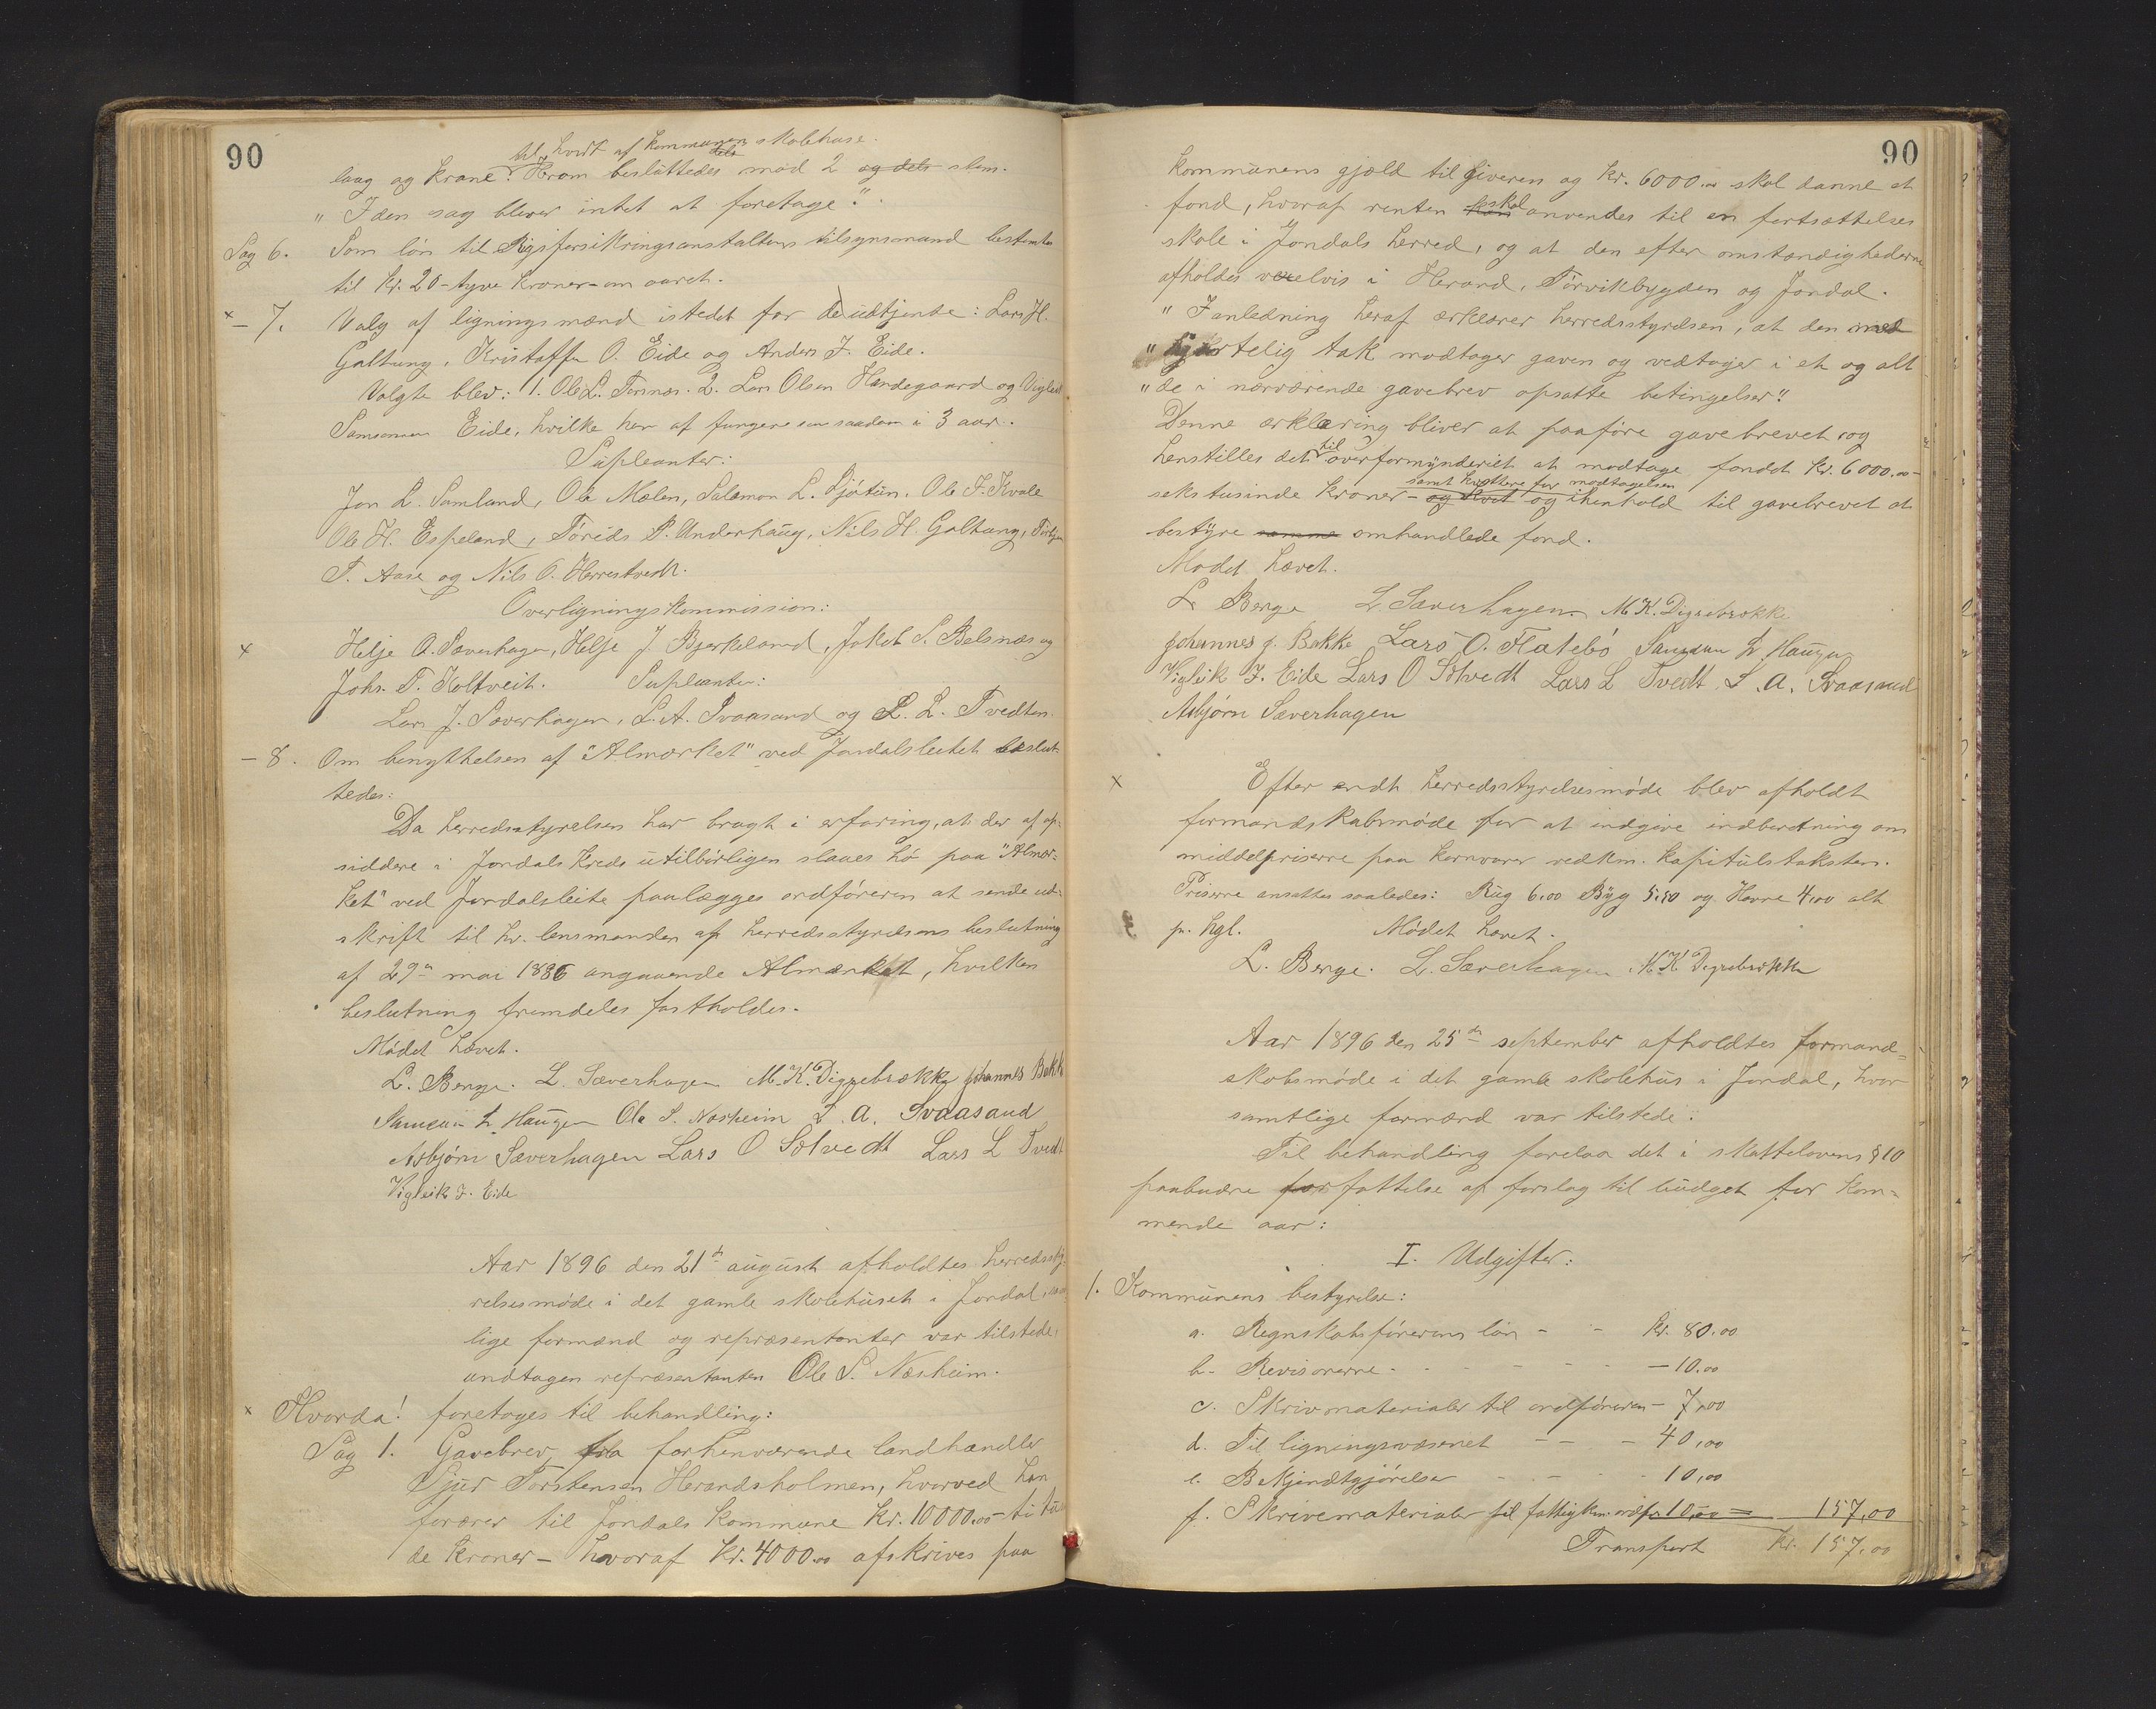 90
til hvert af kommunens skolehuse.
laug og krane. Herom besluttedes med 2 og dels stem.
"I den sag bliver intet at foretage."
Sag 6. Som løn til Rigsforsikringsanstaltens tilsynsmand bestemtes
til Kr. 20 - tyve kroner - om aaret.
x - 7. Valg af ligningsmænd istedet for de udtjente: Lars H.
Galtung, Kristaffer O. Eide og Anders J. Eide.
Valgte blev: 1. Ole L. Tornæs. 2. Lars Olsen Handegaard og Vigleik
Samsonsen Eide, hvilke har at fungere som saadan i 3 aar.
Supleanter:
Jon L. Samland, Ole Mælen, Salamon L. Sjøtun, Ole T. Kvale
Ole H. Espeland, Tørids P. Underhaug, Nils H. Galtung, Torbjørn
T. Aase og Nils O. Herrestvedt.
Overligningskommission:
x Helje A. Sæverhagen, Helje J. Bjerkeland, Jakob S. Belsnæs og
Johs. T. Koltveit. Supleanter:
Lars J. Sæverhagen, L. A. Svaasand og L. L. Tvedten.
- 8. Om benyttelsen af "Almærket" ved Jondalsleitet beslut-
tedes:
Da herredsstyrelsen har bragt i erfaring, at der af op-
siddere i Jondals kreds utilbørligen slaaes hø paa "Almær-
ket" ved Jondalsleite paalægges ordføreren at sende ud-
skrift til hr. lensmanden af herredsstyrelsens beslutning
af 29de mai 1886 angaaende Almærket, hvilken
beslutning fremdeles fastholdes.
Mødet hævet.
L. Berge. L. Sæverhagen M. K. Digrebrække Johannes Bakke
Samson L. Haugen Ole S. Næsheim L. A. Svaasand
Asbjørn Sæverhagen Lars O Solvedt Lars L Tvedt
Vigleik J. Eide
Aar 1896 den 21de august afholdtes herredssty-
relsesmøde i det gamle skolehuset i Jondal, sam
lige formænd og repræsentanter var tilstede,
undtagen repræsentanten Ole S. Næsheim.
x Hvorda! foretoges til behandling:
Sag 1. Gavebrev fra forhenværende landhandler
Sjur Torstensen Herandsholmen, hvorved han
forærer til Jondals kommune Kr. 10000.00 - ti tu
de kroner - hvoraf Kr. 4000.00 afskrives paa
90
kommunens gjæld til giveren og Kr. 6000.00 skal danne et
fond, hvoraf renten skal anvendes til en fortsættelses
skole i Jondals herred, og at den efter omstændighederne
afholdes vexelvis i Herand, Tørvikbygden og Jondal.
"I anledning heraf erklærer herredsstyrelsen, at den med
"hjertelig tak modtager gaven og vedtager i et og alt
"de i nærværende gavebrev opsatte betingelser".
Denne erklæring bliver at paaføre gavebrevet og
henstilles det til overformynderiet at modtage fondet Kr. 6000.00 -
samt kvittere for modtagelsen
sekstusinde kroner - og i henhold til gavebrevet at
bestyre samme omhandlede fond.
Mødet hævet.
L. Berge L Sæverhagen M K. Digrebrække
Johannes J. Bakke Lars O. Flatebø Samson L. Haugen
Vigleik J. Eide Lars O Solvedt Lars L Tvedt L. A. Svaasand
Asbjørn Sæverhagen
x Efter endt herredsstyrelsesmøde blev afholdt
formandskabsmøde for at indgive indberetning om
middelpriserne paa kornvarer vedkm. kapitulstaksten.
Priserne ansattes saaledes: Rug 6.00 Byg 5.50 og Havre 4.00 alt
pr. hgl. Mødet hævet.
L. Berge. L. Sæverhagen M. K. Digrebrække
Aar 1896 den 25de september afholdtes formand-
skabsmøde i det gamle skolehus i Jondal, hvor
samtlige formænd var tilstede.
Til behandling forelaa det i skattelovens § 10
paabudne forfattelse af forslag til budget for kom-
mende aar:
I. Udgifter:
1. Kommunens bestyrelse:
a. Regnskabsførerens løn - - Kr. 80.00
b. Revisorerne - - - - - - 10.00
c. Skrivmaterialer til ordføreren - 7.00
d. Til ligningsvæsenet - - - 40.00
e. Bekjendtgjørelser - - - - 10.00
f. Skrivematerialer til fattigkm. ordfør 10.00 = 157.00
Transport Kr. 157.00